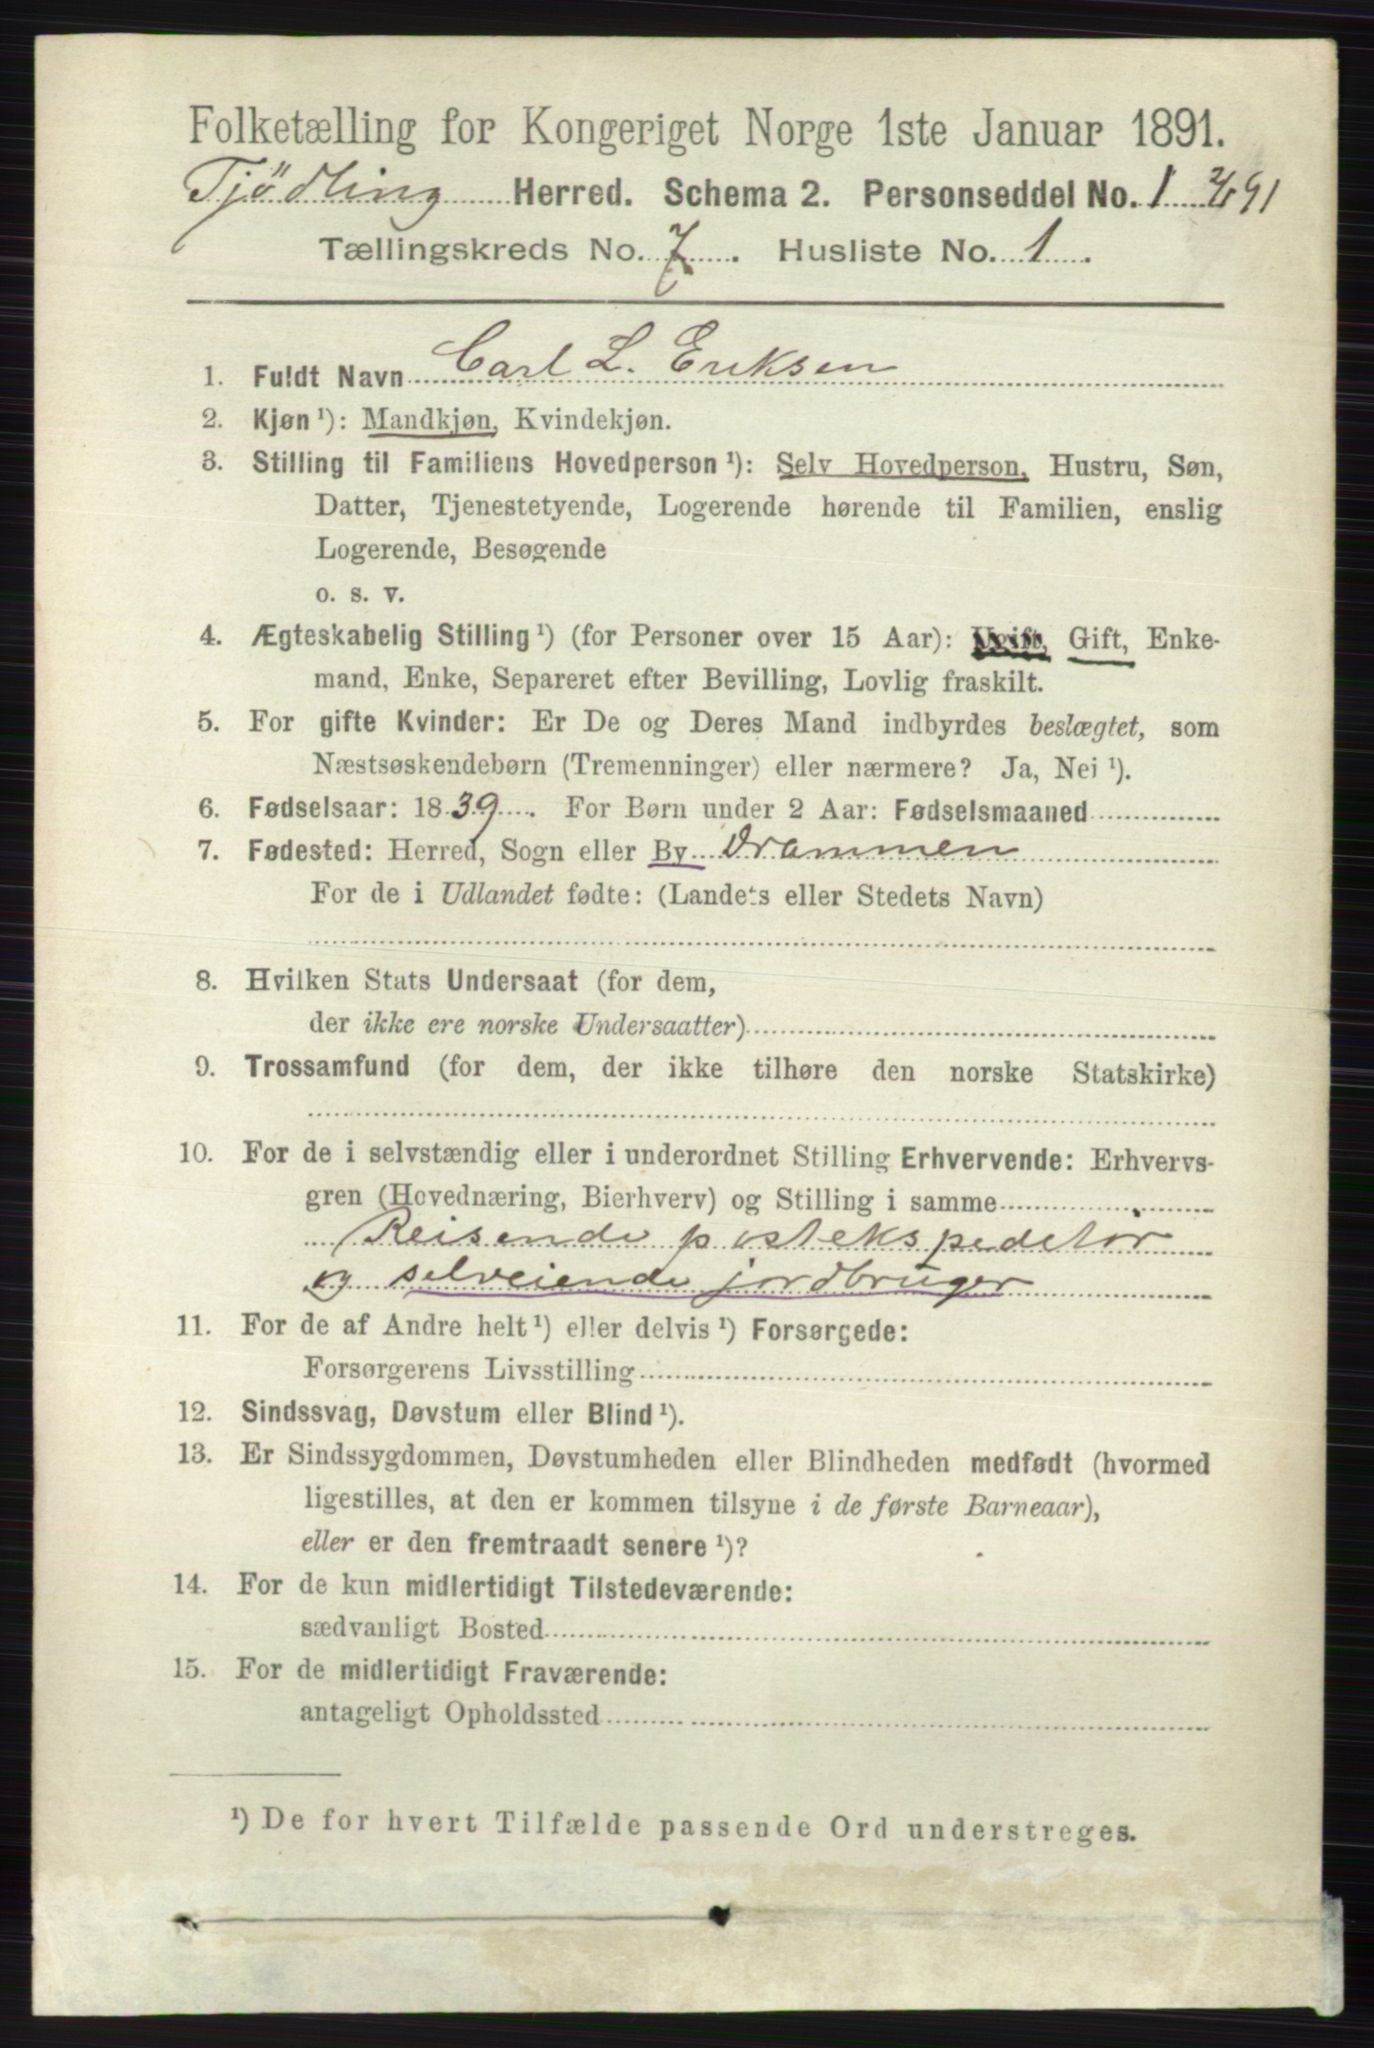 Folketælling for Kongeriget Norge 1ste Januar 1891.
Tjödling Herred. Schema 2. Personseddel No. 1
Tællingskreds No. 7. Husliste No. 1.
1. Fuldt Navn Carl L. Eriksen
2. Kjøn ¹): Mandkjøn, Kvindekjøn.
3. Stilling til Familiens Hovedperson ¹): Selv Hovedperson, Hustru, Søn,
Datter, Tjenestetyende, Logerende hørende til Familien, enslig
Logerende, Besøgende
o. s. v.
4. Ægteskabelig Stilling ¹) (for Personer over 15 Aar): Ugift, Gift, Enke-
mand, Enke, Separeret efter Bevilling, Lovlig fraskilt.
5. For gifte Kvinder: Er De og Deres Mand indbyrdes beslægtet, som
Næstsøskendebørn (Tremenninger) eller nærmere? Ja, Nei ¹).
6. Fødselsaar: 1839. For Børn under 2 Aar: Fødselsmaaned
7. Fødested: Herred, Sogn eller By Drammen
For de i Udlandet fødte: (Landets eller Stedets Navn)
8. Hvilken Stats Undersaat (for dem,
der ikke ere norske Undersaatter)
9. Trossamfund (for dem, der ikke tilhøre den norske Statskirke)
10. For de i selvstændig eller i underordnet Stilling Erhvervende: Erhvervs-
gren (Hovednæring, Bierhverv) og Stilling i samme
Reisende postekspeditør
og selveiende jordbruger
11. For de af Andre helt ¹) eller delvis ¹) Forsørgede:
Forsørgerens Livsstilling
12. Sindssvag, Døvstum eller Blind ¹).
13. Er Sindssygdommen, Døvstumheden eller Blindheden medfødt (hvormed
ligestilles, at den er kommen tilsyne i de første Barneaar),
eller er den fremtraadt senere ¹)?
14. For de kun midlertidigt Tilstedeværende:
sædvanligt Bosted
15. For de midlertidigt Fraværende:
antageligt Opholdssted
¹) De for hvert Tilfælde passende Ord understreges.